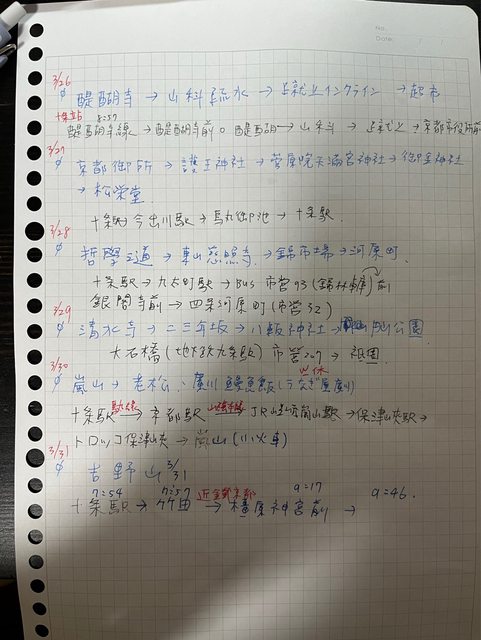 No.
Date
3/26
醍醐寺 → 山科疏水 → 蹴上インクライン → 超市
十条站 8:57
醍醐寺線 → 醍醐寺前。醍醐 → 山科 → 蹴上 → 京都市役所前
3/27
京都御所 → 護王神社 → 菅原院天満宮神社 → 御金神社
→ 松栄堂.
十条駅 今出川駅 → 烏丸御池 → 十条駅.
3/28
哲學之道 → 東山慈照寺. → 錦市場 → 河原町.
十条駅 → 九太町駅 → Bus 市営93 (錦林車庫) 前
銀閣寺前 → 四条河原町 (市営32)
3/29
清水寺 → 二三年坂 → 八坂神社 → 円山公園
大石橋 (地下鉄九条駅) 市営207 → 祇園.
3/30
嵐山 → 老松、廣川鰻魚飯 (うなぎ屋廣川)
十条駅 → 京都駅 山陰本線 JR嵯峨嵐山駅 → 保津峡駅 →
トロッコ保津峡 → 嵐山 (小火車)
3/31
吉野山 3/31
7:54 7:57 近鉄京都 9:17 9:46.
十条駅 → 竹田 → 橿原神宮前 →